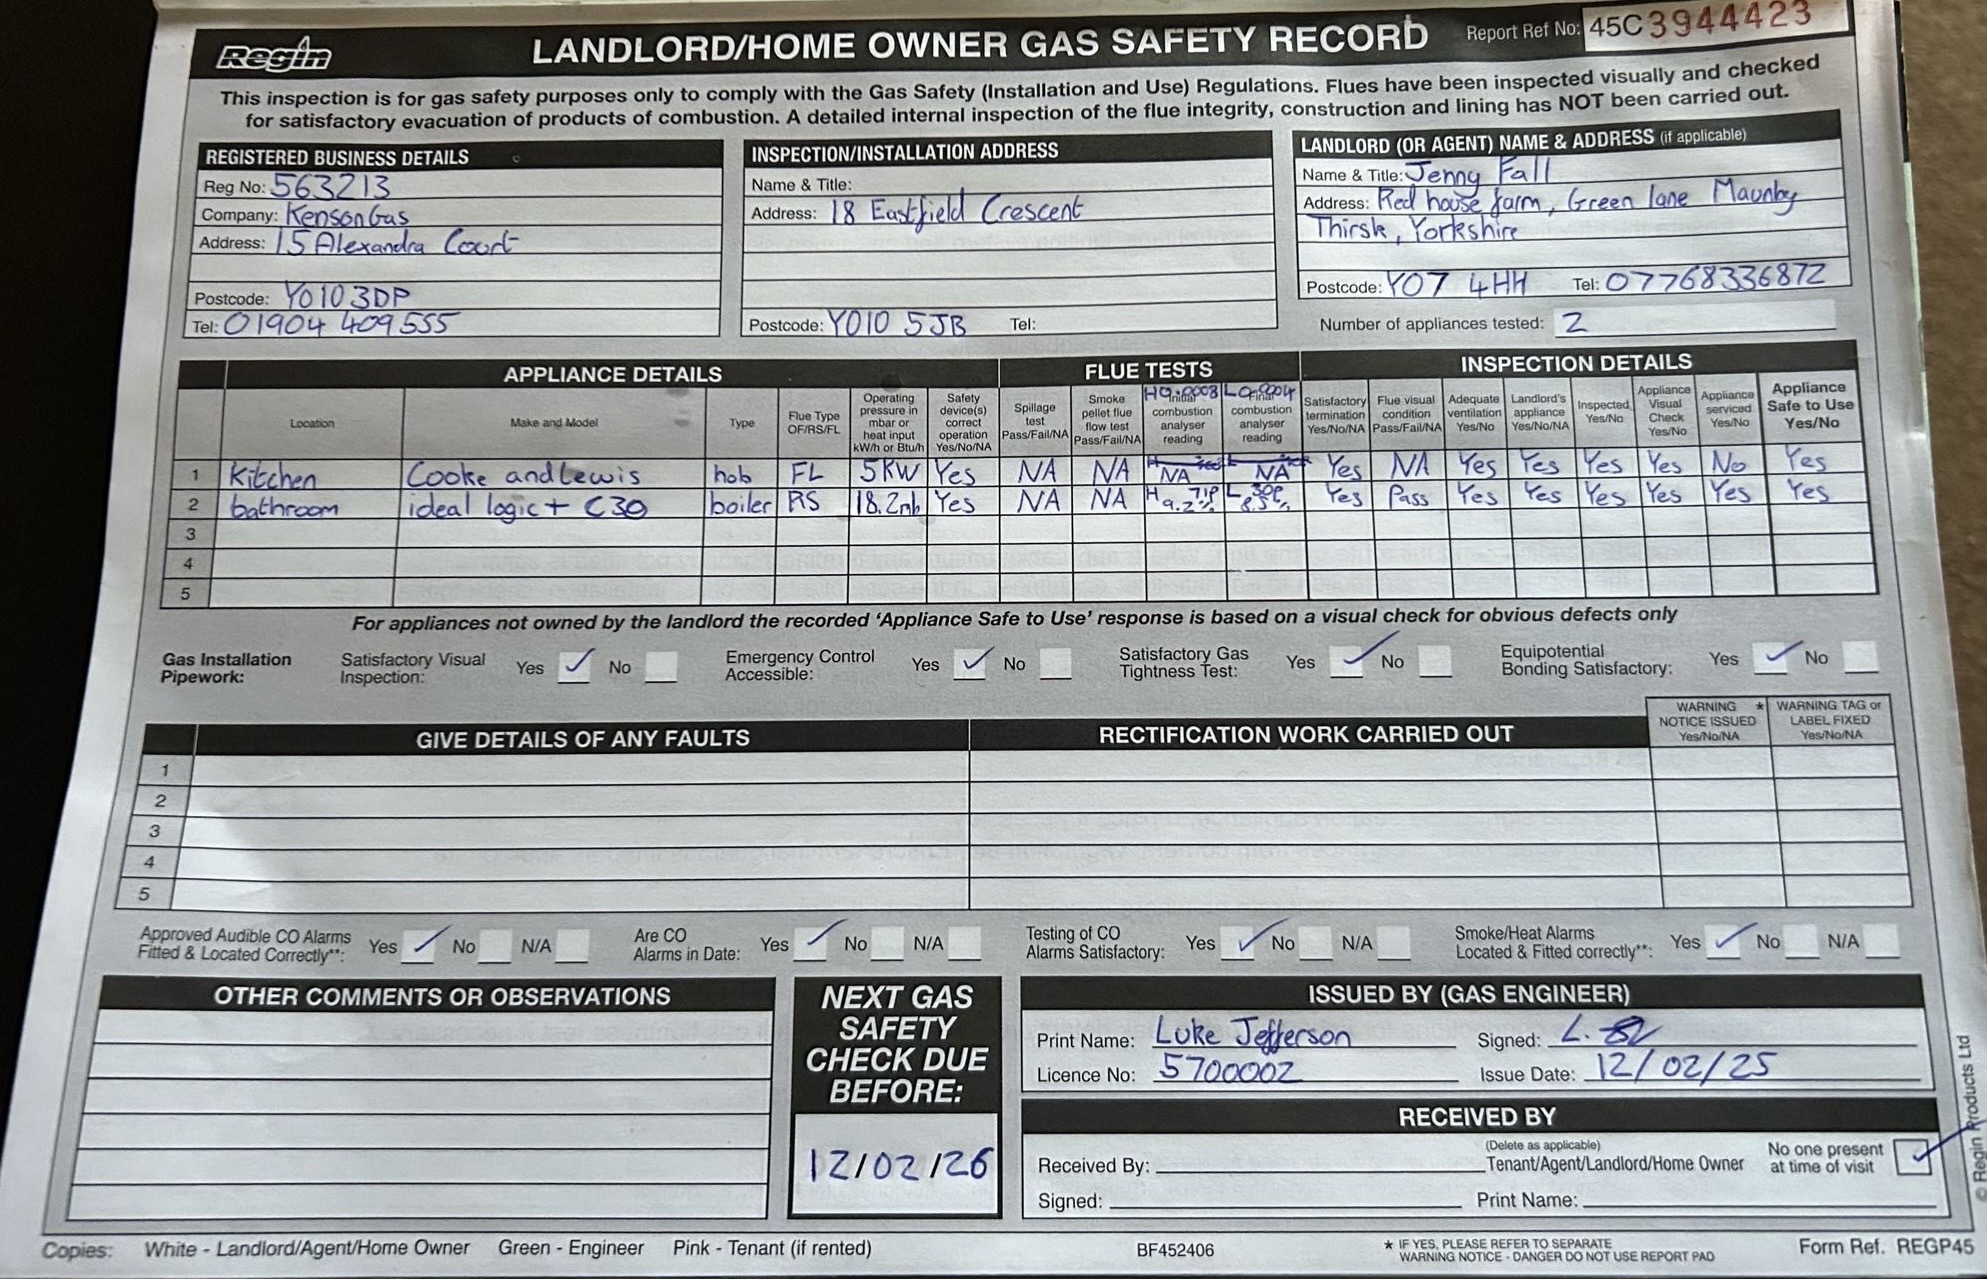 Regin
LANDLORD/HOME OWNER GAS SAFETY RECORD
Report Ref No: 45C3944423
This inspection is for gas safety purposes only to comply with the Gas Safety (Installation and Use) Regulations. Flues have been inspected visually and checked
for satisfactory evacuation of products of combustion. A detailed internal inspection of the flue integrity, construction and lining has NOT been carried out.
REGISTERED BUSINESS DETAILS
Reg No: 563213
Company: Kenson Gas
Address: 15 Alexandra Court
Postcode: YO10 3DP
Tel: 01904 409555
INSPECTION/INSTALLATION ADDRESS
Name & Title:
Address: 18 Eastfield Crescent
Postcode: YO10 5JB Tel:
LANDLORD (OR AGENT) NAME & ADDRESS (if applicable)
Name & Title: Jenny Fall
Address: Red house farm, Green lane Maunby
Thirsk, Yorkshire
Postcode: YO7 4HH Tel: 07768336872
Number of appliances tested: 2
APPLIANCE DETAILS FLUE TESTS INSPECTION DETAILS
Location
Make and Model
Type
Flue Type
OF/RS/FL
Operating
pressure in
mbar or
heat input
kW/h or Btu/h
Safety
device(s)
correct
operation
Yes/No/NA
Spillage
test
Pass/Fail/NA
Smoke
pellet flue
flow test
Pass/Fail/NA
Initial
combustion
analyser
reading
Final
combustion
analyser
reading
Satisfactory
termination
Yes/No/NA
Flue visual
condition
Pass/Fail/NA
Adequate
ventilation
Yes/No
Landlord's
appliance
Yes/No/NA
Inspected
Yes/No
Appliance
Visual
Check
Yes/No
Appliance
serviced
Yes/No
Appliance
Safe to Use
Yes/No
1 Kitchen Cooke and Lewis hob FL 5KW Yes NA NA NA NA Yes NA Yes Yes Yes Yes No Yes
2 bathroom ideal logic + C30 boiler RS 18.2mb Yes NA NA H 9.2% L Yes Pass Yes Yes Yes Yes Yes Yes
3
4
5
For appliances not owned by the landlord the recorded 'Appliance Safe to Use' response is based on a visual check for obvious defects only
Gas Installation
Pipework:
Satisfactory Visual
Inspection: Yes ✓ No
Emergency Control
Accessible: Yes ✓ No
Satisfactory Gas
Tightness Test: Yes ✓ No
Equipotential
Bonding Satisfactory: Yes ✓ No
GIVE DETAILS OF ANY FAULTS
RECTIFICATION WORK CARRIED OUT
WARNING *
NOTICE ISSUED
Yes/No/NA
WARNING TAG or
LABEL FIXED
Yes/No/NA
1
2
3
4
5
Approved Audible CO Alarms
Fitted & Located Correctly**: Yes ✓ No N/A
Are CO
Alarms in Date: Yes ✓ No N/A
Testing of CO
Alarms Satisfactory: Yes ✓ No N/A
Smoke/Heat Alarms
Located & Fitted correctly**: Yes ✓ No N/A
OTHER COMMENTS OR OBSERVATIONS
NEXT GAS
SAFETY
CHECK DUE
BEFORE:
12/02/26
ISSUED BY (GAS ENGINEER)
Print Name: Luke Jefferson Signed:
Licence No: 5700002 Issue Date: 12/02/25
RECEIVED BY
(Delete as applicable)
Received By: Tenant/Agent/Landlord/Home Owner
No one present
at time of visit ✓
Signed: Print Name:
© Regin Products Ltd
Copies: White - Landlord/Agent/Home Owner Green - Engineer Pink - Tenant (if rented)
BF452406
* IF YES, PLEASE REFER TO SEPARATE
WARNING NOTICE - DANGER DO NOT USE REPORT PAD
Form Ref. REGP45